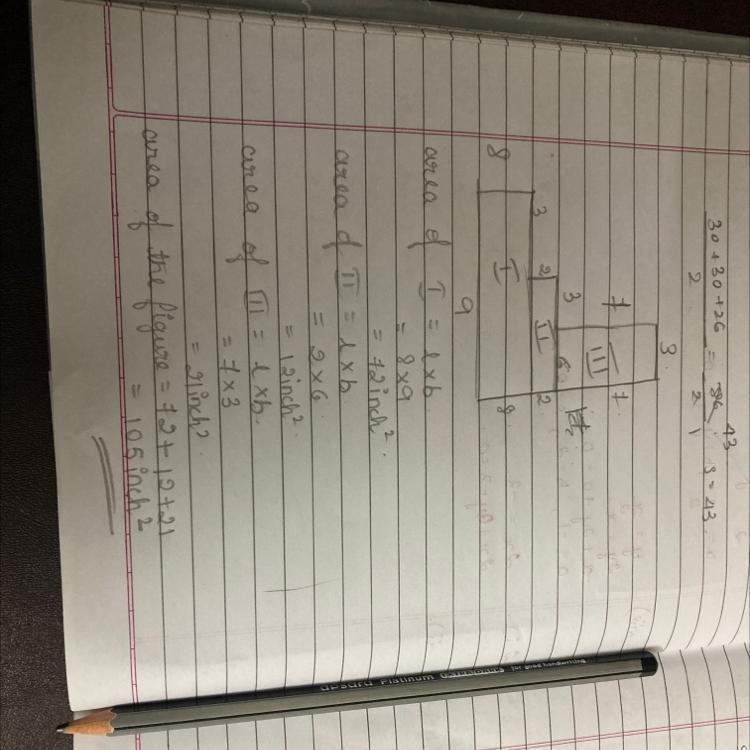 30+30+26 = 86 43
2 2 1
s = 43
3
7 III 7
3 6
2 II 2
3
8 I 8
9
area of I = l×b
= 8×9
= 72inch².
area of II = l×b
= 2×6
= 12inch².
area of III = l×b.
= 7×3
= 21inch².
area of the figure = 72+12+21
= 105inch²
apsara Platinum EXTRA DARK for good handwriting